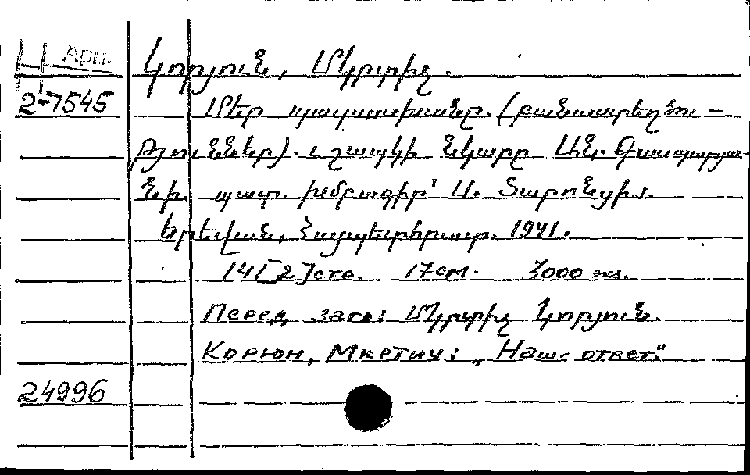 Арм.
Կորյուն, Մկրտիչ.
2-7545 Մեր պատասխանը. (բանաստեղծու-
թյուններ). շապկի նկարը Ան. Գասպարյա-
նի. պատ. խմբագիր՝ Ա. Տարոնցի.
Երևան, Հայպետհրատ. 1941.
141[2]стр. 17см. 3000 экз.
Перед загл: Մկրտիչ Կորյուն.
Корюн, Мкртич: „Наш ответ."
24996